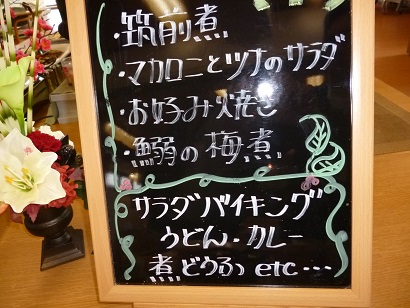 ・筑前煮
・マカロニとツナのサラダ
・お好み焼き
・鰯の梅煮
サラダバイキング
うどん・カレー
煮どうふ etc…